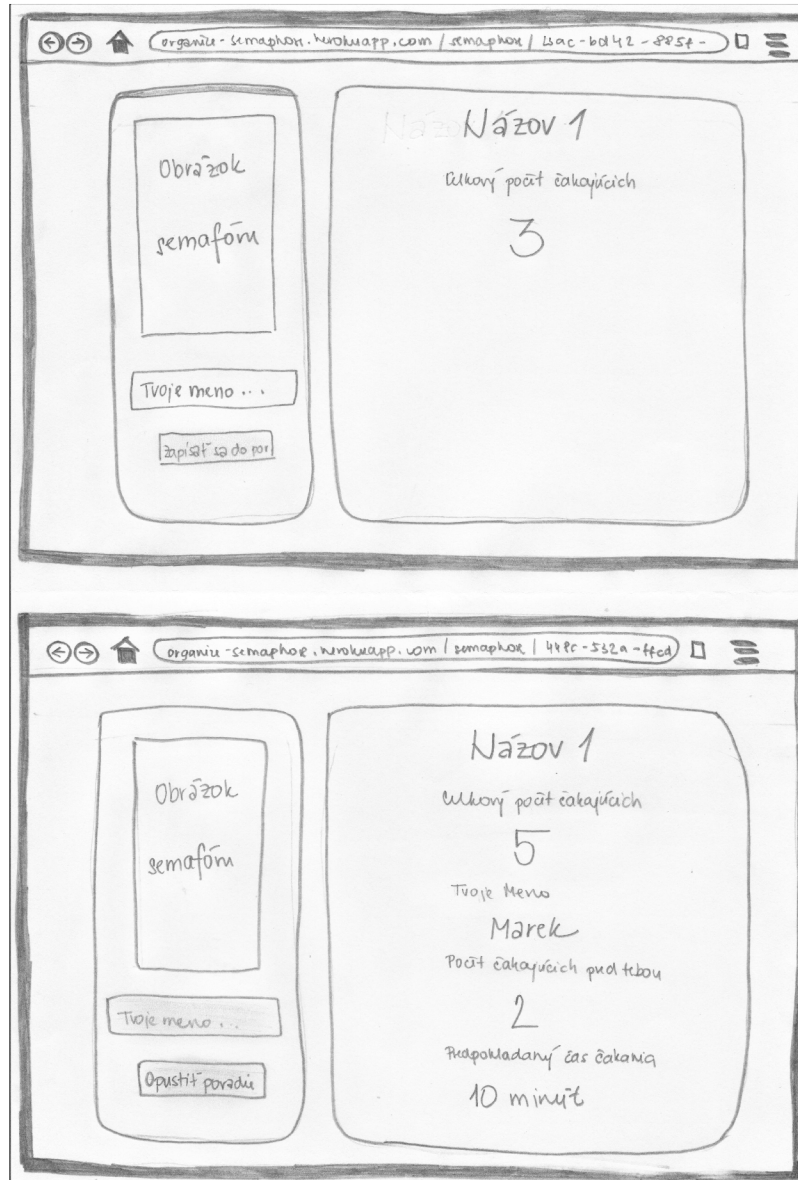 organize-semaphore.herokuapp.com / semaphore /
Obrázok
semafóru
Tvoje meno ...
Zapísať sa do por
Názov 1
Celkový počet čakajúcich
3
organize-semaphore.herokuapp.com / semaphore / 448c-532a-ffcd
Obrázok
semafóru
Tvoje meno ...
Opustiť poradie
Názov 1
Celkový počet čakajúcich
5
Tvoje Meno
Marek
Počet čakajúcich pred tebou
2
Predpokladaný čas čakania
10 minút